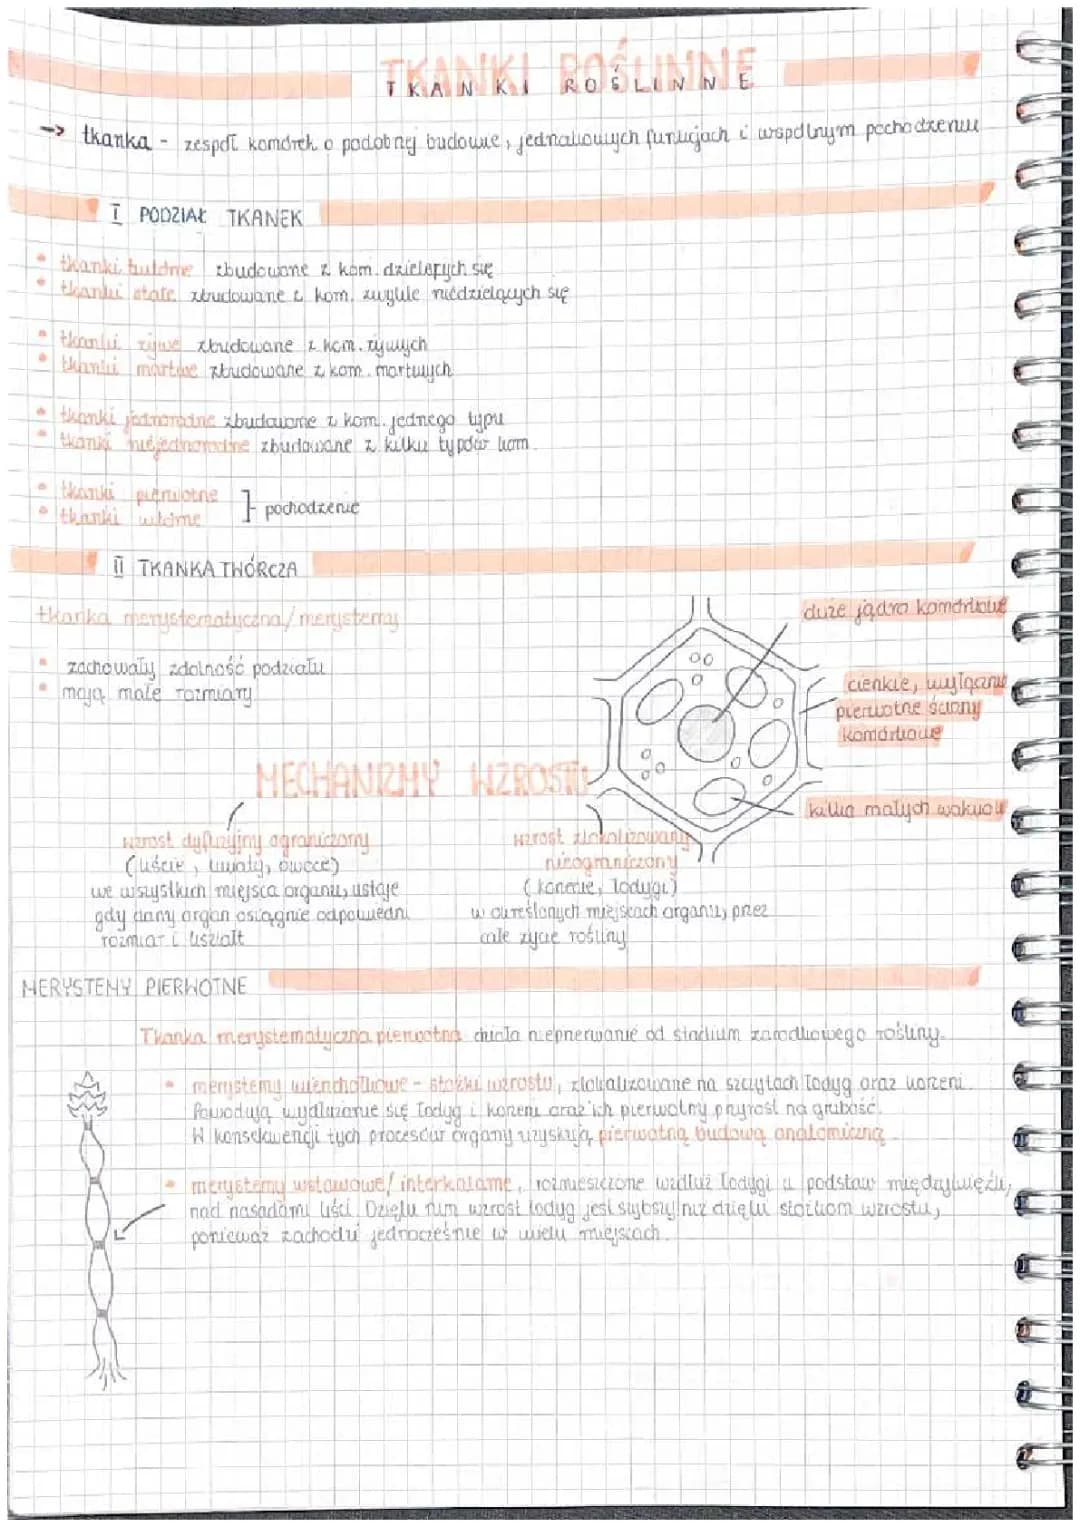 TKANKI ROŚLINNE
→ tkanka - zespół komórek o podobnej budowie, jednakowych funkcjach i wspólnym pochodzeniu
I PODZIAŁ TKANEK
• tkanki twórcze zbudowane z kom. dzielących się
• tkanki stałe zbudowane z kom. zwykle niedzielących się
• tkanki żywe zbudowane z kom. żywych
• tkanki martwe zbudowane z kom. martwych
• tkanki jednorodne zbudowane z kom. jednego typu
• tkanki niejednorodne zbudowane z kilku typów kom.
• tkanki pierwotne
• tkanki wtórne
} pochodzenie
II TKANKA TWÓRCZA
tkanka merystematyczna/merystemy
• zachowały zdolność podziału
• mają małe rozmiary
duże jądro komórkowe
cienkie, wyłącznie
pierwotne ściany
komórkowe
kilka małych wakuoli
MECHANIZMY WZROSTU
wzrost dyfuzyjny ograniczony
(liście, kwiaty, owoce)
we wszystkich miejsca organu, ustaje
gdy dany organ osiągnie odpowiedni
rozmiar i kształt
wzrost zlokalizowany
nieograniczony
(korzenie, łodygi)
w określonych miejscach organu, przez
całe życie rośliny
MERYSTEMY PIERWOTNE
Tkanka merystematyczna pierwotna działa nieprzerwanie od stadium zarodkowego rośliny.
• merystemy wierzchołkowe - stożki wzrostu, zlokalizowane na szczytach łodyg oraz korzeni.
Powodują wydłużanie się łodyg i korzeni oraz ich pierwotny przyrost na grubość.
W konsekwencji tych procesów organy uzyskują pierwotną budowę anatomiczną.
• merystemy wstawowe/interkalarne, rozmieszczone wzdłuż łodygi u podstaw międzywęźli,
nad nasadami liści. Dzięki nim wzrost łodyg jest szybszy niż dzięki stożkom wzrostu,
ponieważ zachodzi jednocześnie w wielu miejscach.